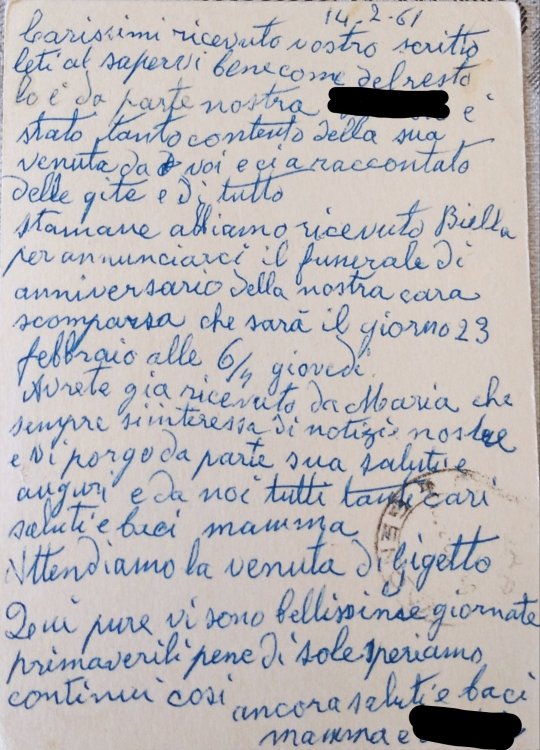 14-2-61
Carissimi ricevuto vostro scritto
leti al sapervi bene come del resto
lo è da parte nostra è
stato tanto contento della sua
venuta da voi e ci a raccontato
delle gite e di tutto
stamane abbiamo ricevuto Biella
per annunciarci il funerale di
anniversario della nostra cara
scomparsa che sarà il giorno 23
febbraio alle giovedì.
Avrete già ricevuto da Maria che
sempre si interessa di notizie nostre
e vi porgo da parte sua saluti e
auguri e da noi tutti tanti cari
saluti e baci mamma
Attendiamo la venuta di Gigetto
Qui pure vi sono bellissime giornate
primaverili pene di sole speriamo
continui così
ancora saluti e baci
mamma e